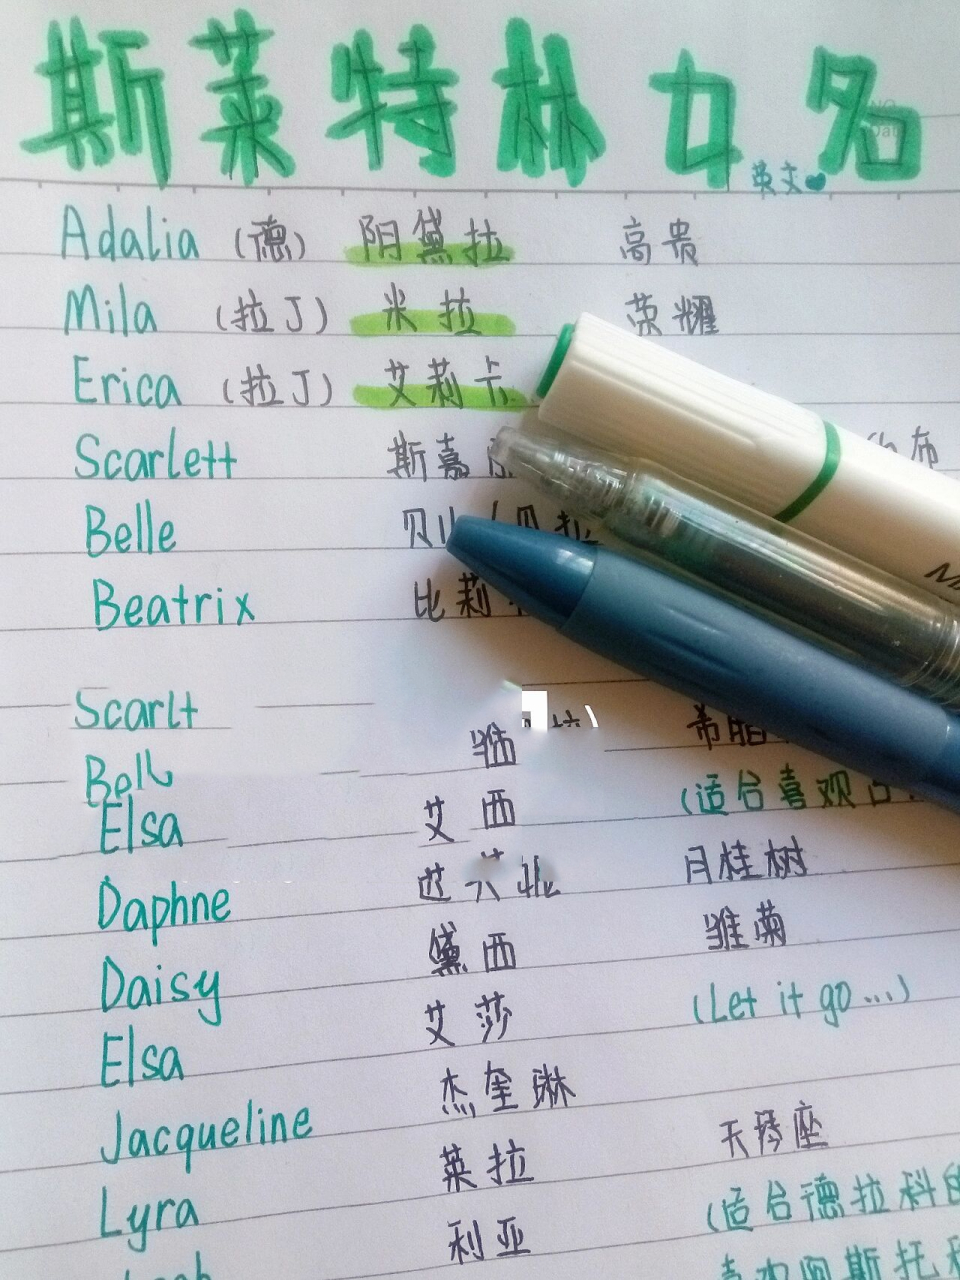 斯莱特林女名
英文
Adalia (德) 阳黛拉 高贵
Mila (拉丁) 米拉 荣耀
Erica (拉丁) 艾莉卡
Scarlett 斯嘉 布
Belle
Beatrix 比莉
Scarlt
希腊
Elsa 艾西 (适合喜观
Daphne 月桂树
Daisy 黛西 雏菊
Elsa 艾莎 (Let it go...)
Jacqueline 杰奎琳
Lyra 莱拉 天琴座
利亚 (适合德拉科的